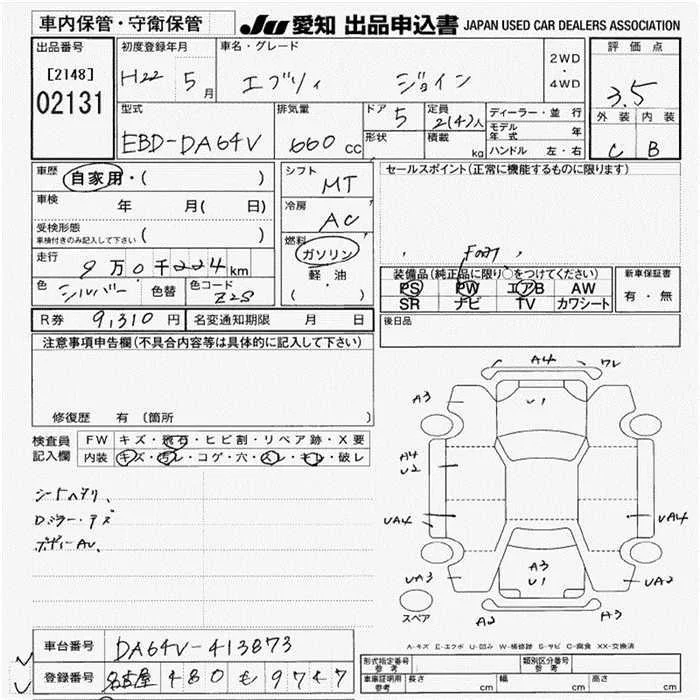 車内保管・守衛保管
JU 愛知 出品申込書 JAPAN USED CAR DEALERS ASSOCIATION
出品番号
[2148]
02131
初度登録年月
H22 5月
車名・グレード
エブリィ ジョイン
2WD
・
4WD
評価点
3.5
外装 内装
C B
型式
EBD-DA64V
排気量
660 CC
ドア 5
形状
定員 2(4)人
積載 kg
ディーラー・並行
モデル年式 年
ハンドル 左・右
車歴
自家用・( )
車検
年 月( 日)
受検形態
車検付きのみ記入して下さい ( )
走行
9万0千224km
色 シルバー 色替 色コード Z2S
シフト
MT
冷房
AC
燃料
ガソリン
軽油
( ・ )
セールスポイント(正常に機能するものに限ります)
装備品(純正品に限り○をつけてください)
PS PW エアB AW
SR ナビ TV カワシート
新車保証書
有・無
R券 9,310円 名変通知期限 月 日
後日品
注意事項申告欄(不具合内容等は具体的に記入して下さい)
修復歴 有 (箇所 )
検査員
記入欄
FW キズ・飛石・ヒビ割・リペア跡・X要
内装 キズ・汚レ・コゲ・穴・スレ・キレ・破レ
シートヘタリ、
Dミラー・キズ
ボディーAU、
A4 ワレ
A3 U1
A4
U2
UA4 UA4
A3
U1
UA3 UA2
A2 A3
スペア
A-キズ E-エクボ U-凹み W-補修跡 S-サビ C-腐食 XX-交換済
車台番号 DA64V-413873
登録番号 名古屋 480 を 9747
形式指定番号 参考
類別区分番号 参考
車庫証明用 参考 長さ cm 幅 cm 高さ cm